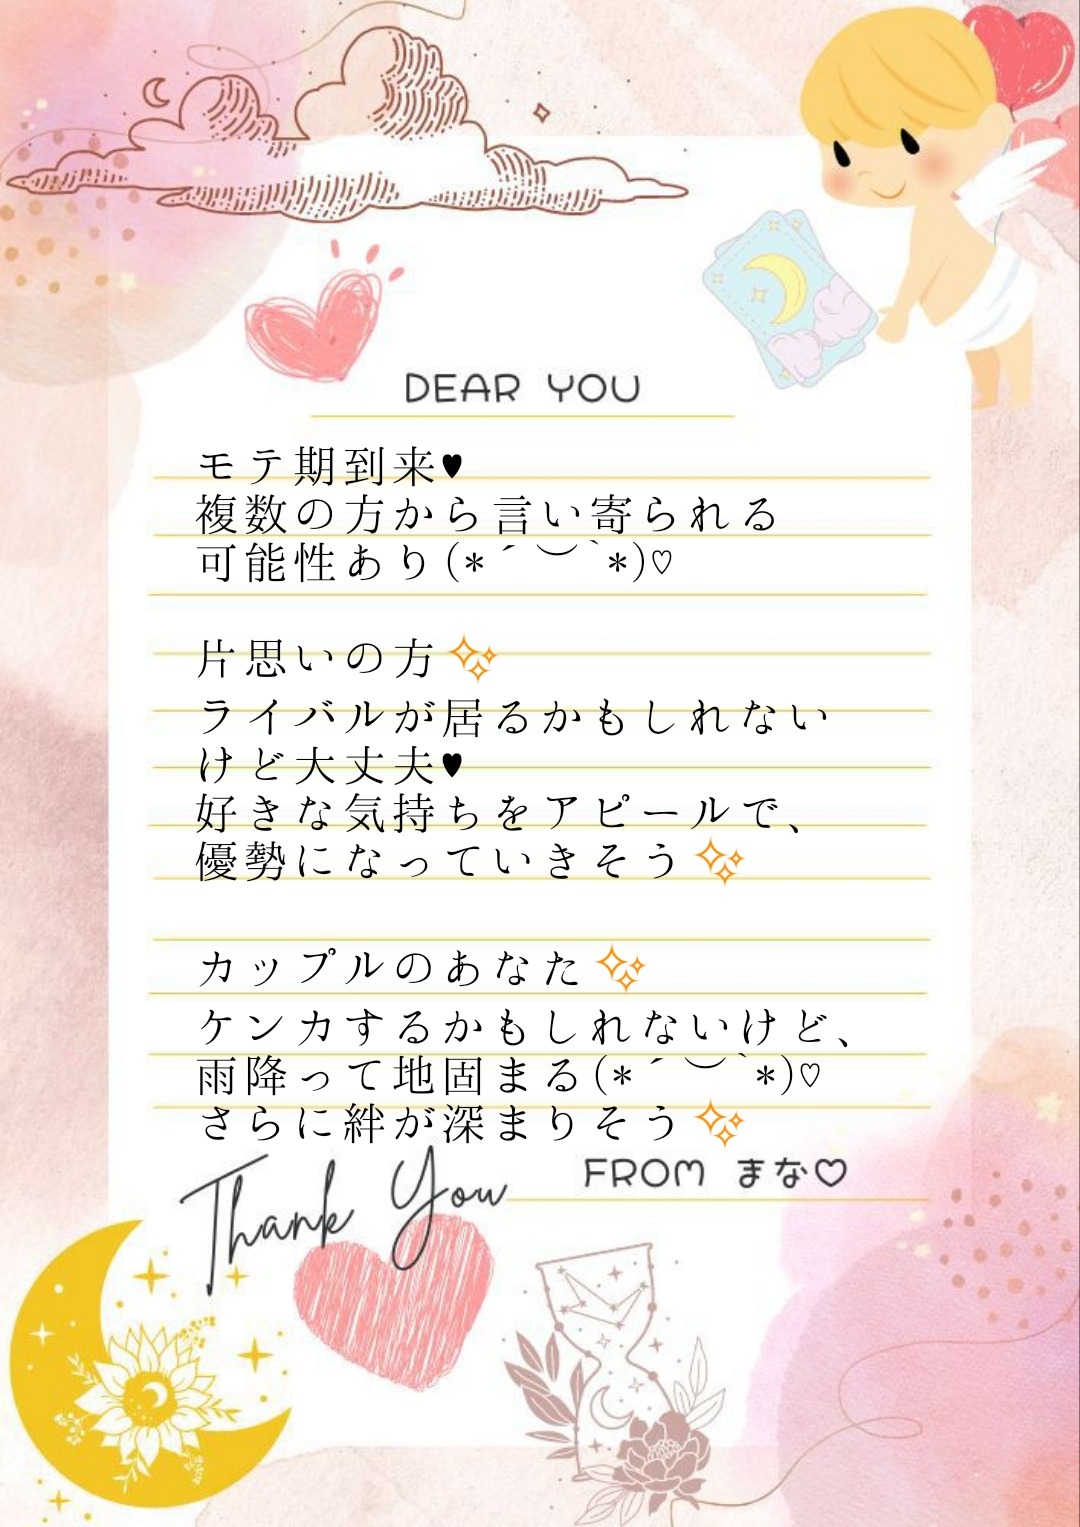 DEAR YOU
モテ期到来♥
複数の方から言い寄られる
可能性あり(*´︶`*)♡
片思いの方✨
ライバルが居るかもしれない
けど大丈夫♥
好きな気持ちをアピールで、
優勢になっていきそう✨
カップルのあなた✨
ケンカするかもしれないけど、
雨降って地固まる(*´︶`*)♡
さらに絆が深まりそう✨
Thank You
FROM まな♡